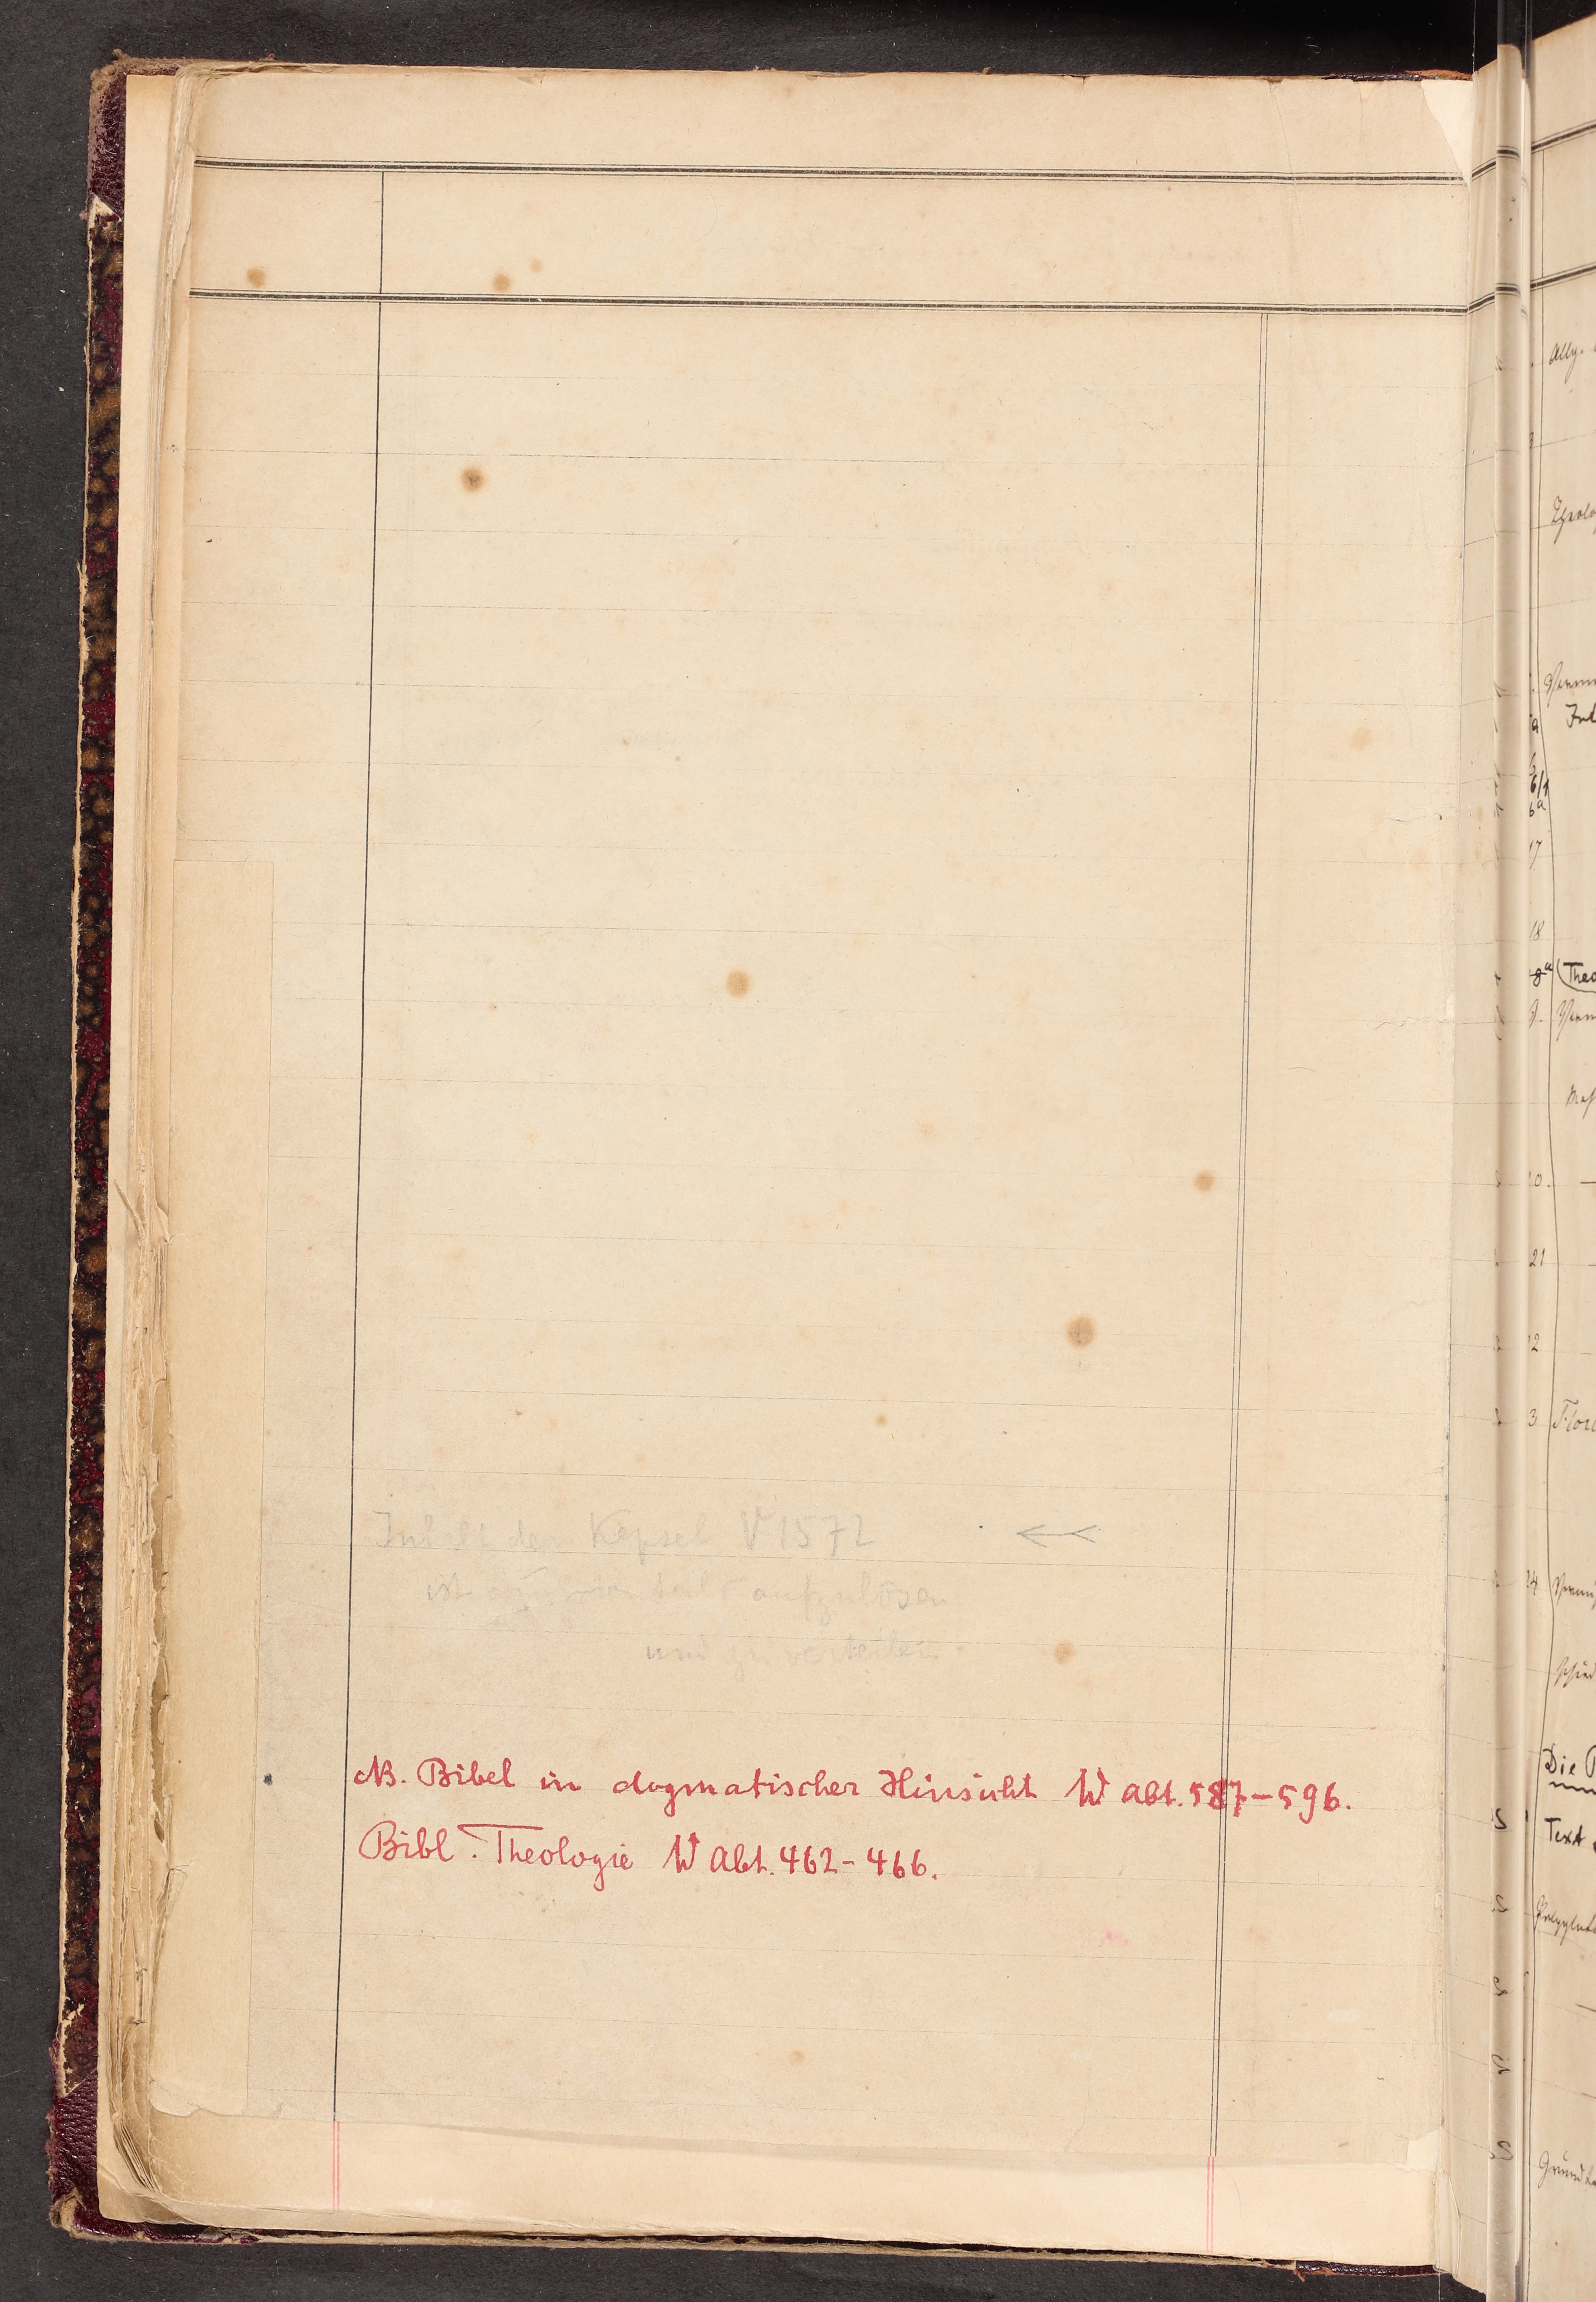 Inhalt der Kapsel V 1572 <<
ist aufzulösen
und zu verteilen
NB. Bibel in dogmatischer Hinsicht W Abt. 587–596.
Bibl. Theologie W Abt. 462–466.